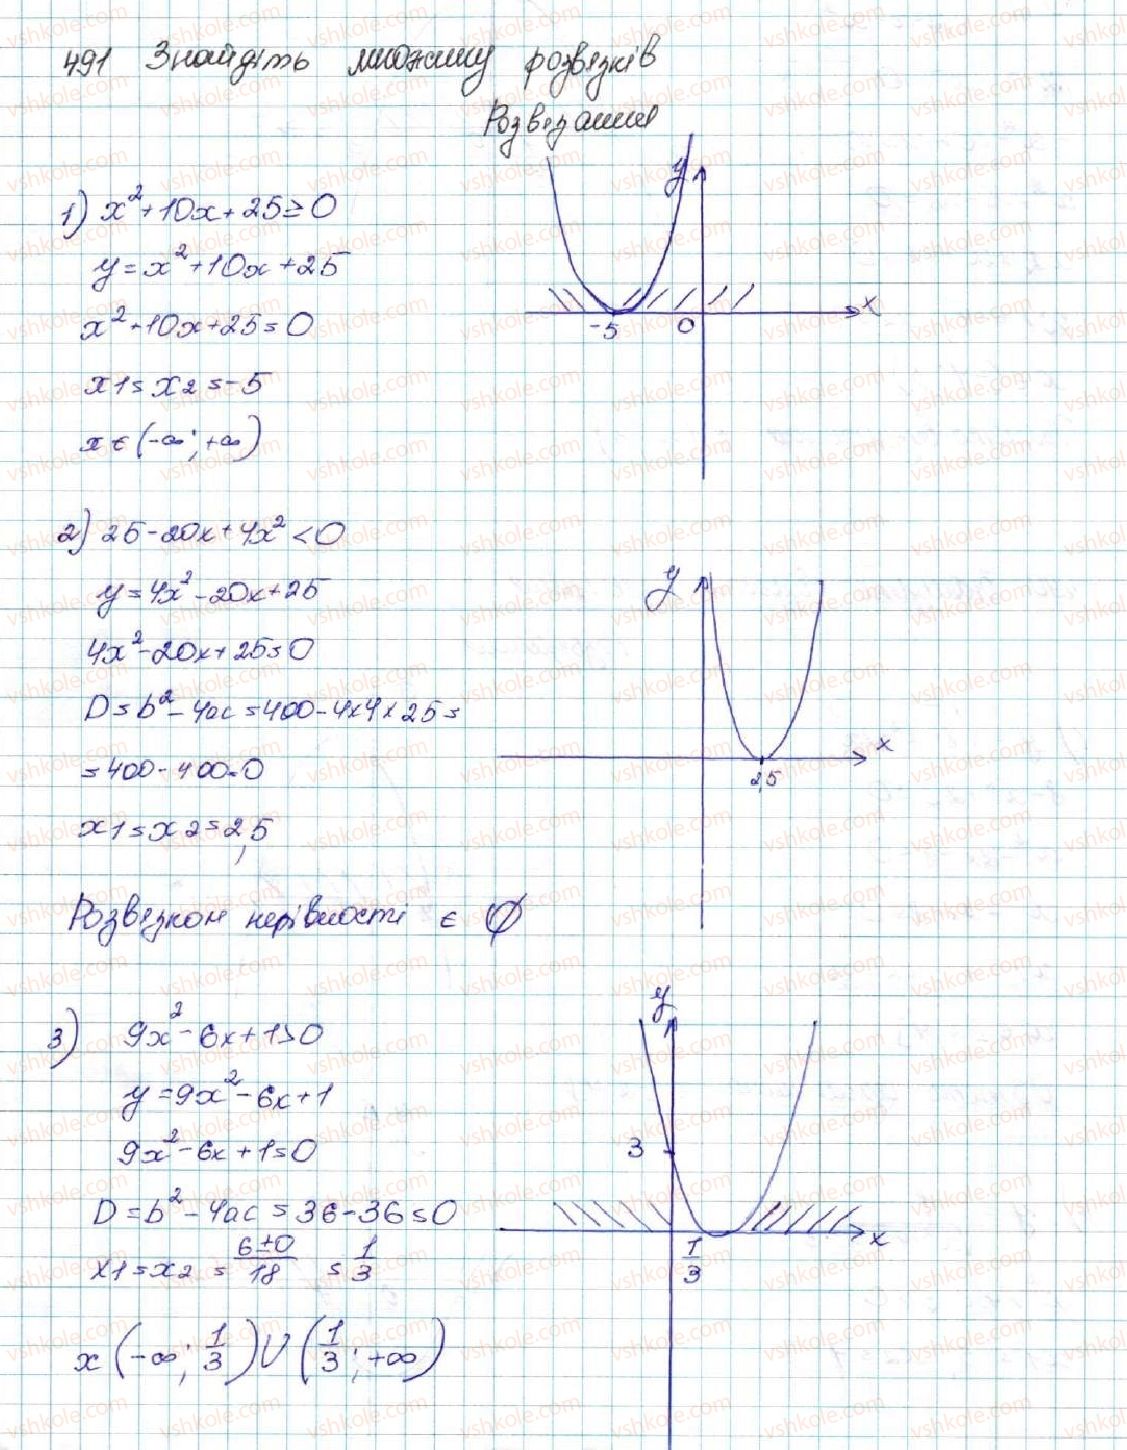 491 Знайдіть множину розвязків
Розвязання
1) x²+10x+25≥0
y=x²+10x+25
x²+10x+25=0
x1=x2=-5
x є (-∞; +∞)
y
x
-5
0
2) 25-20x+4x²<0
y=4x²-20x+25
4x²-20x+25=0
D=b²-4ac=400-4×4×25=
=400-400=0
x1=x2=2,5
y
x
2,5
Розвязком нерівності є Ø
3) 9x²-6x+1>0
y=9x²-6x+1
9x²-6x+1=0
D=b²-4ac=36-36=0
x1=x2=(6±0)/18=1/3
x (-∞; 1/3) U (1/3; +∞)
y
3
x
1/3
vshkole.com